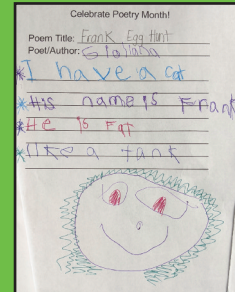 Celebrate Poetry Month!
Poem Title: Frank Egg Hunt
Poet/Author: Giuliana
*I have a cat
*His name is Frank
*He is Fat
*like a tank